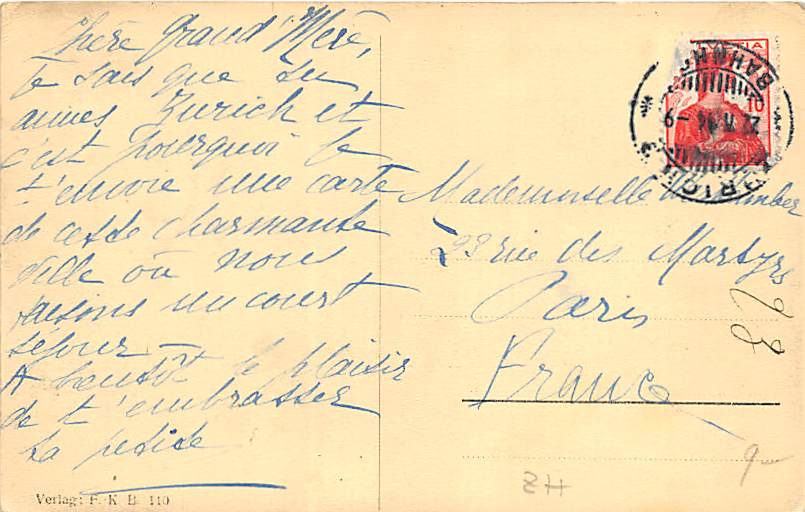 Chère Grand'Mère,
Je sais que tu
aimes Zurich et
c'est pourquoi je
t'envoie une carte
de cette charmante
ville où nous
faisons un court
séjour
A bientôt le plaisir
de t'embrasser
Ta petite
Verlag: F. K. B. 110
HELVETIA
10
BAHNH
ZÜRICH
Mademoiselle
23 rue des Martyrs
Paris
France
23
ZH